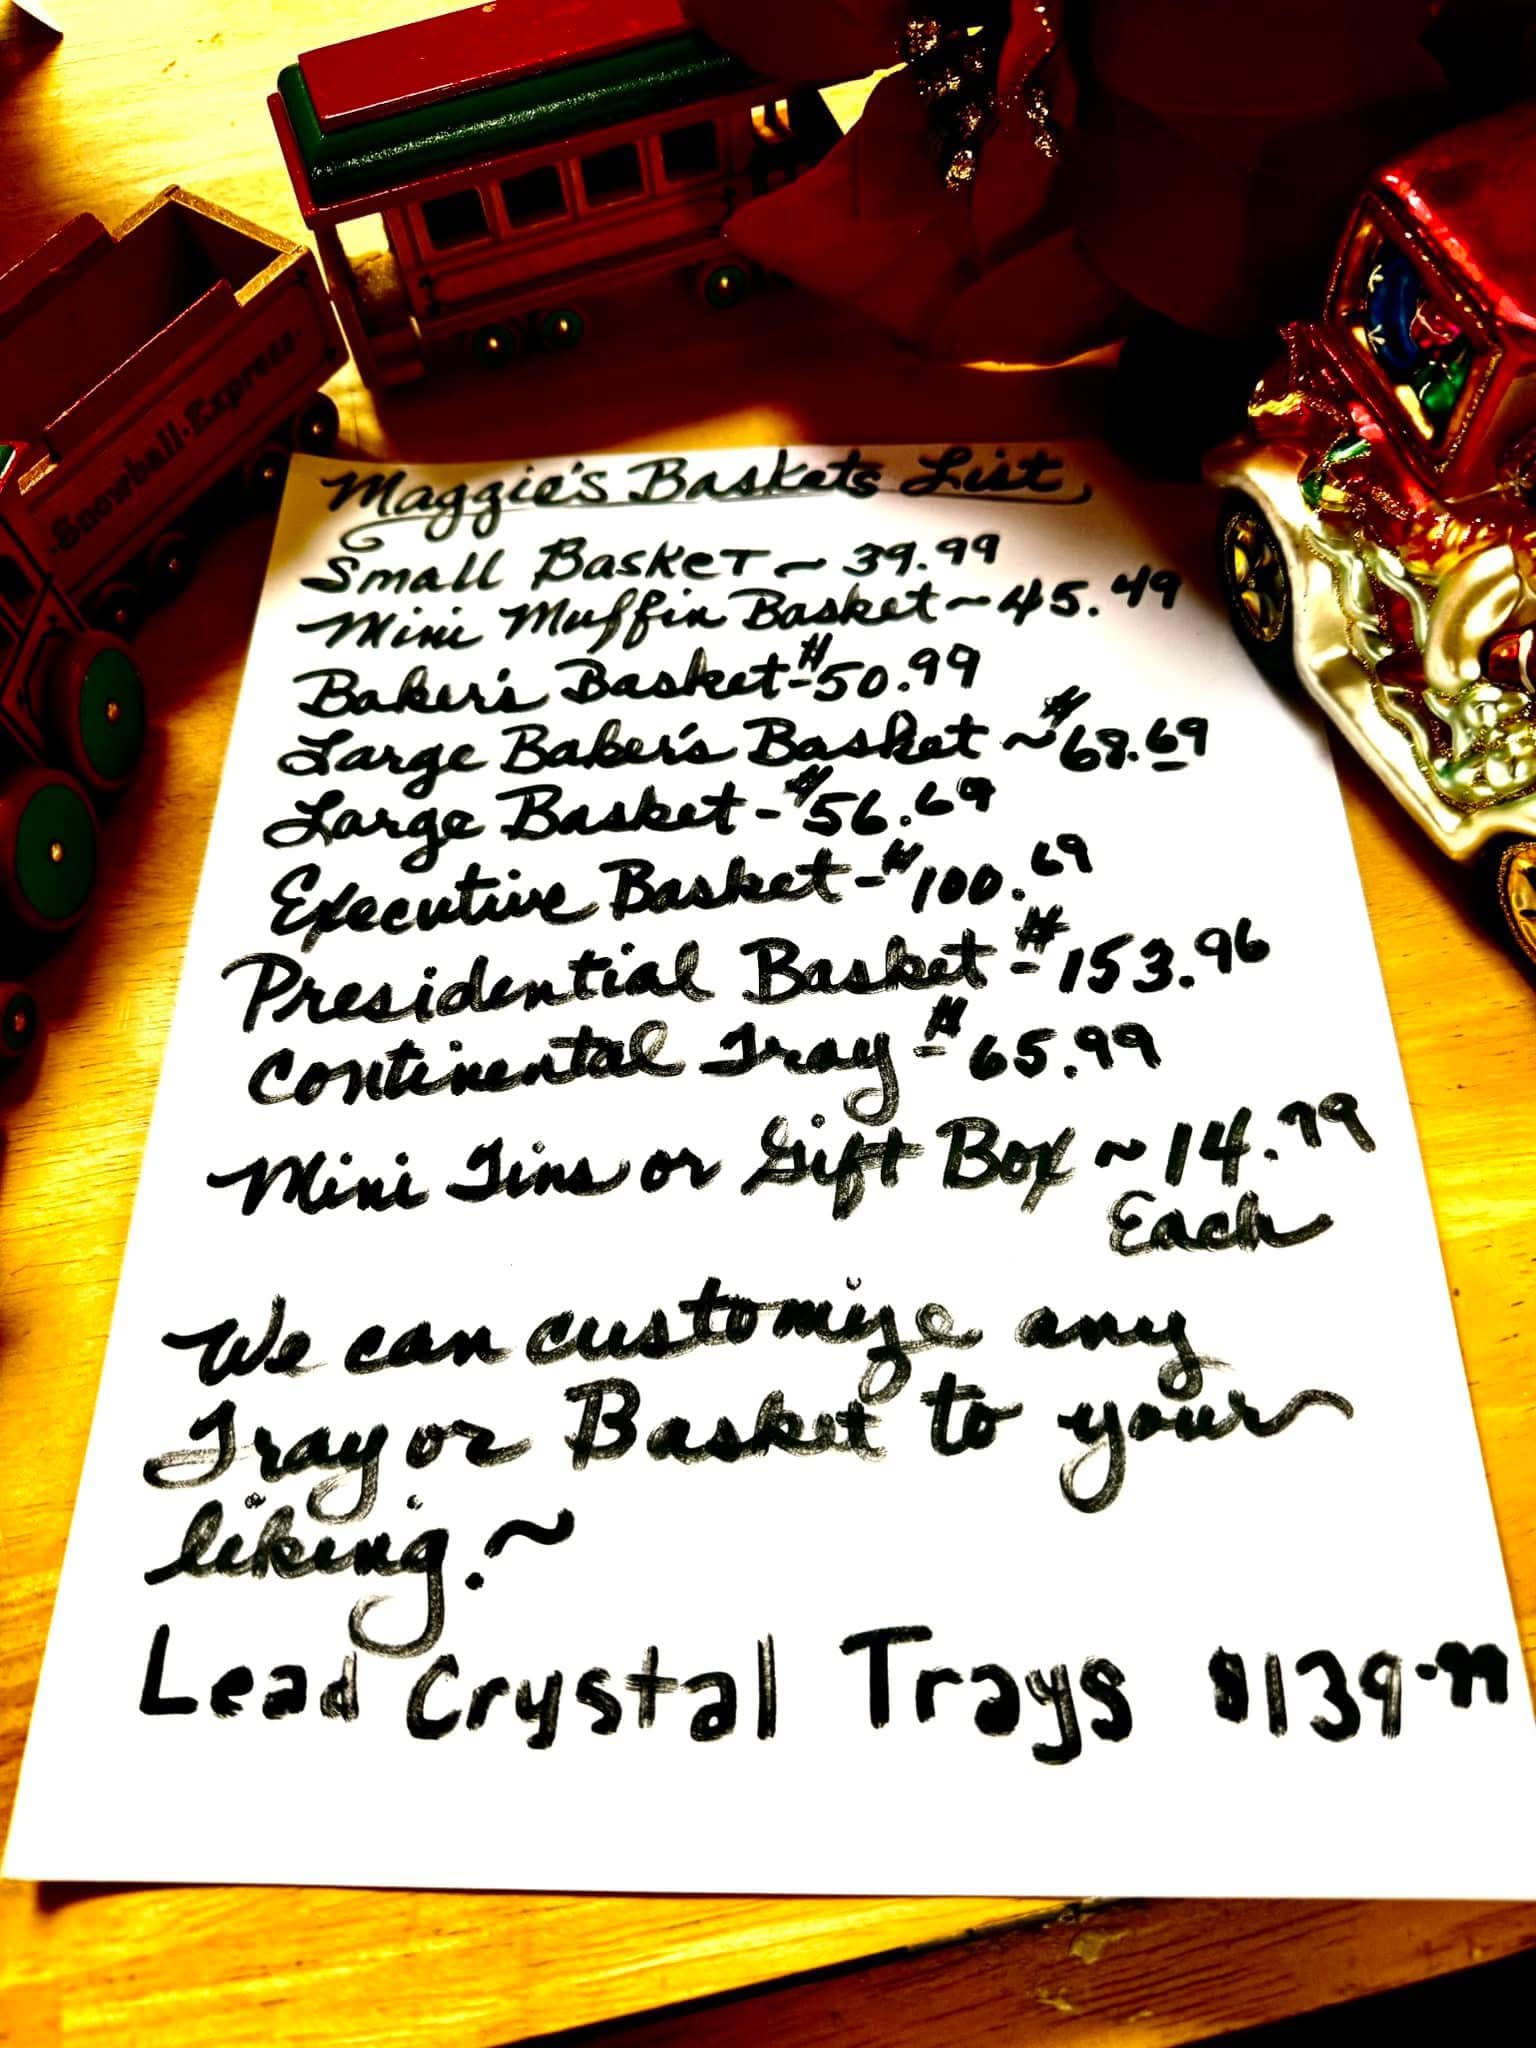 Snowball Express
Maggie's Baskets List
Small Basket ~ 39.99
Mini Muffin Basket ~ 45.49
Baker's Basket - $50.99
Large Baker's Basket ~ $68.69
Large Basket - $56.69
Executive Basket - $100.69
Presidential Basket - $153.96
Continental Tray - $65.99
Mini Tins or Gift Box ~ 14.79
Each
We can customize any
Tray or Basket to your
liking. ~
Lead Crystal Trays $139.99